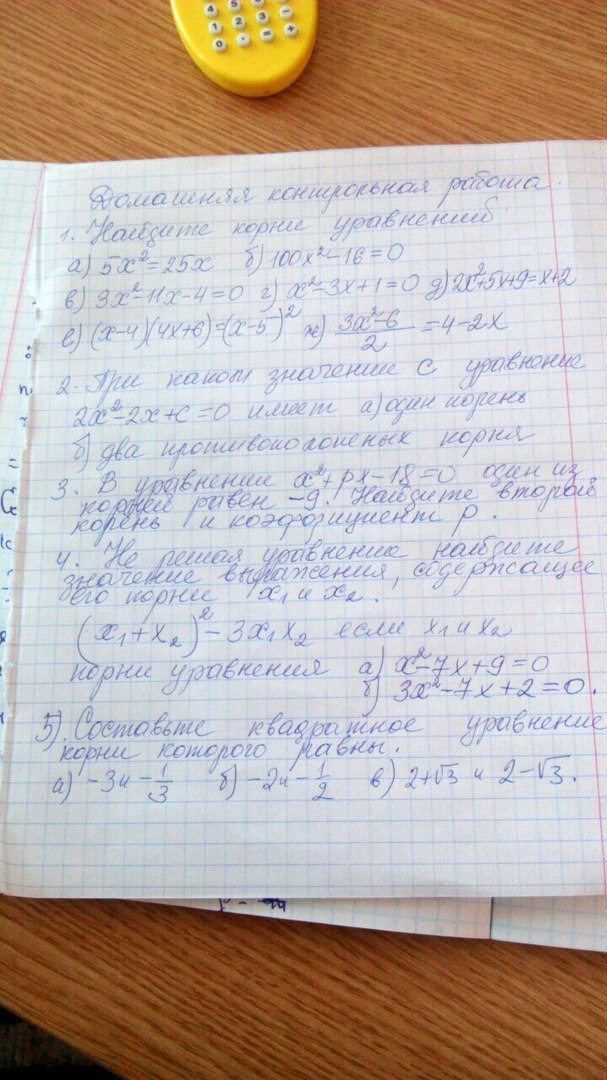 4 5 6
1 2 3 -
0 . = +
Домашняя контрольная работа.
1. Найдите корни уравнений
а) 5x²=25x б) 100x²-16=0
в) 3x²-11x-4=0 г) x²-3x+1=0 д) 2x²+5x+9=x+2
е) (x-4)(4x+6)=(x-5)² ж) (3x²-6)/2=4-2x
2. При каком значение с уравнение
2x²-2x+c=0 имеет а) один корень
б) два противоположных корня
3. В уравнение x²+px-18=0 один из
корней равен -9. Найдите второй
корень и коэффициент p.
4. Не решая уравнение найдите
значение выражения, содержащее
его корни x₁ и x₂.
(x₁+x₂)²-3x₁x₂ если x₁ и x₂
корни уравнения а) x²-7x+9=0
б) 3x²-7x+2=0.
5). Составьте квадратное уравнение
корни которого равны.
а) -3 и -1/3 б) -2 и -1/2 в) 2+√3 и 2-√3.